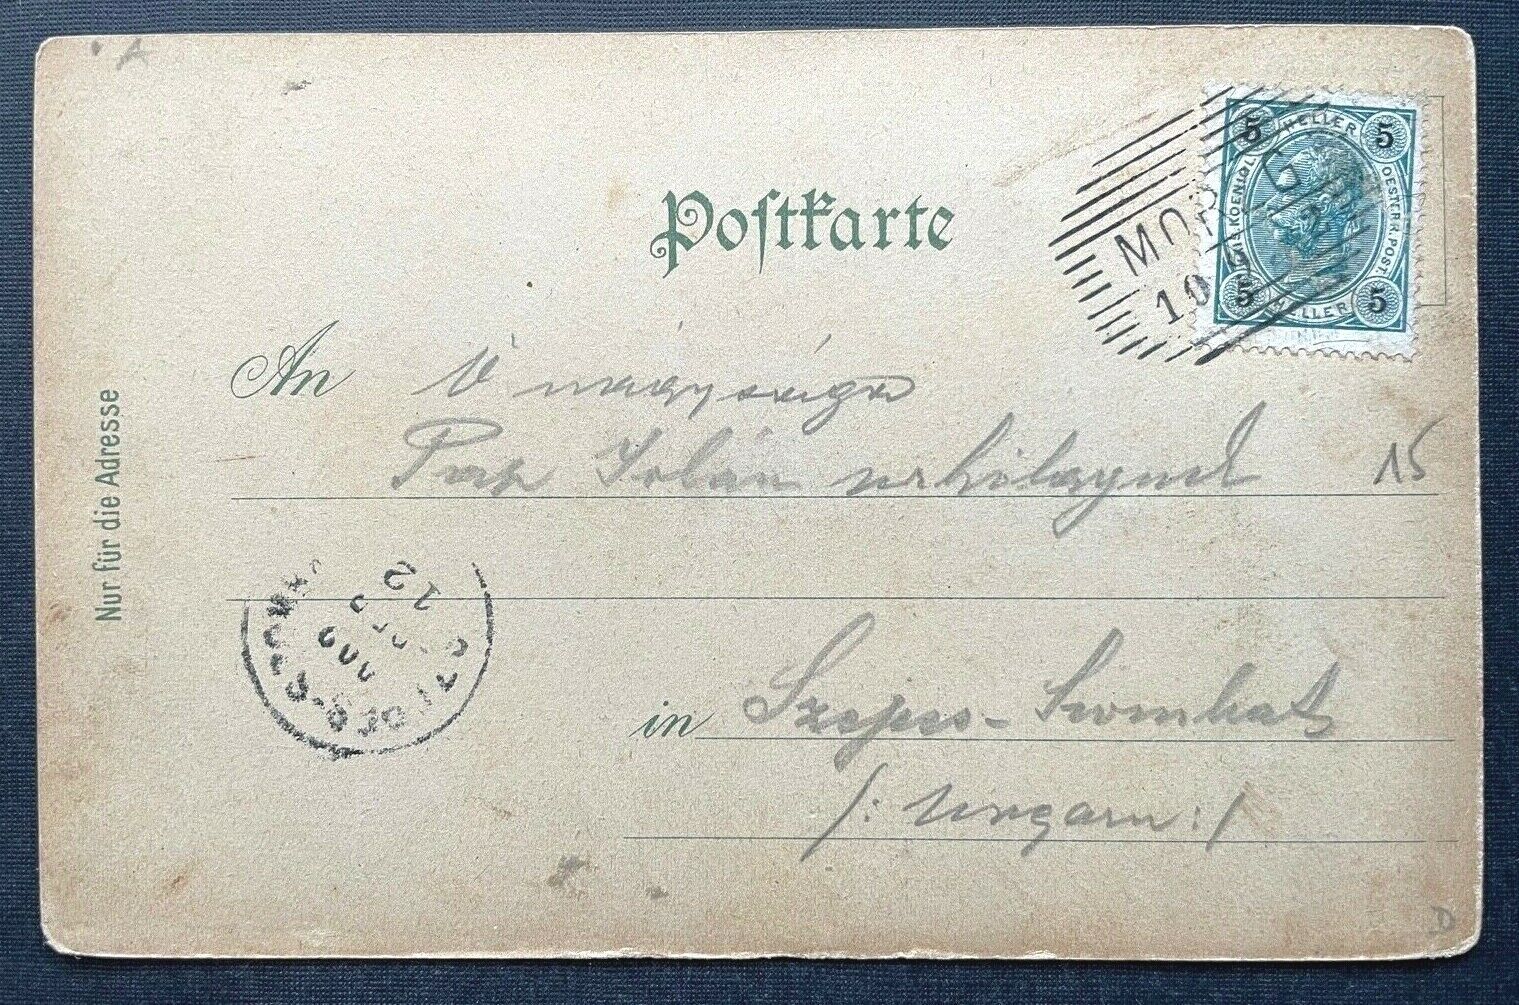 Postkarte
5 HELLER 5
KAIS. KOENIGL.
OESTERR. POST.
5 HELLER 5
MOR
10
An Ő nagysága
Pap Jolán
15
Nur für die Adresse
12
in Szepes-Szombat
/: Ungarn :/
D